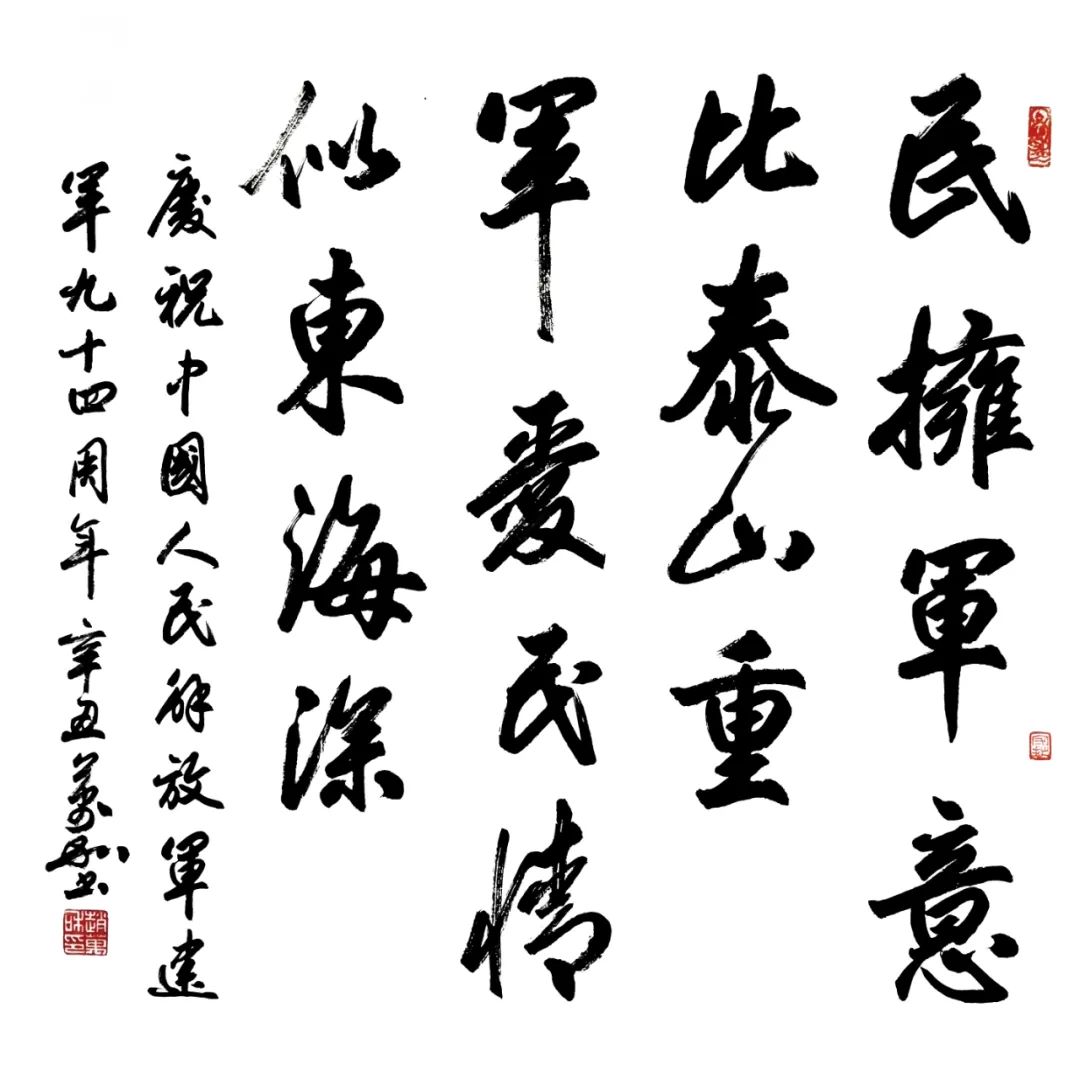 民擁軍意
比泰山重
軍愛民情
似東海深
慶祝中國人民解放軍建
軍九十四周年辛丑萬和書
趙萬咊印